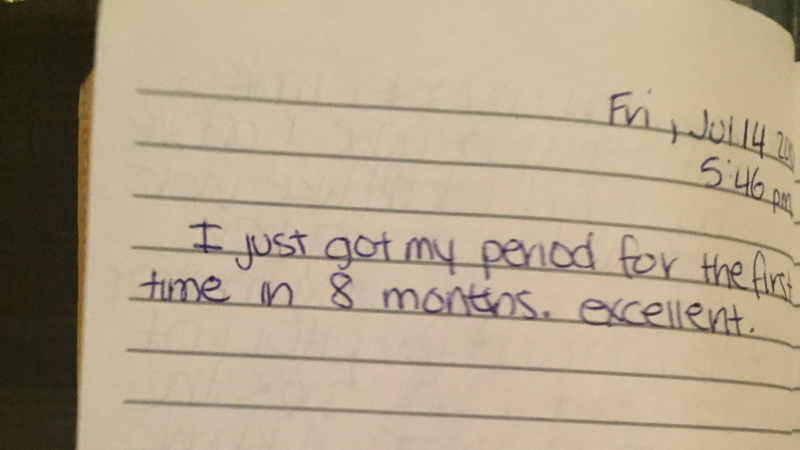 Fri, Jul 14
5:46 pm
I just got my period for the first
time in 8 months. excellent.